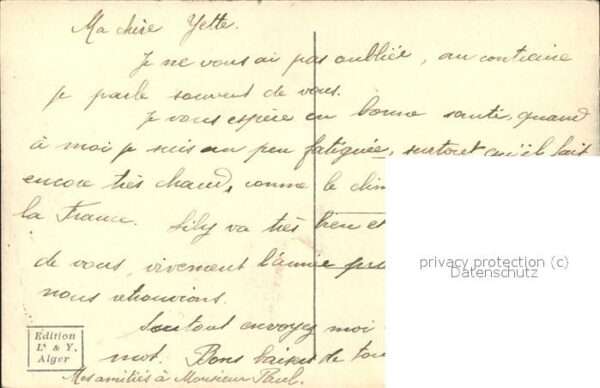 Ma chère Yette.
Je ne vous ai pas oubliée, au contraire
je parle souvent de vous.
Je vous espère en bonne santé, quand
à moi je suis un peu fatiguée, surtout qu'il fait
encore très chaud, comme le
la France. Lily va très bien et
de vous, vivement l'année
nous retrouvions.
Surtout envoyez moi
mot. Bons baisers de
Mes amitiés à Monsieur Paul.
Edition
L. & Y.
Alger
privacy protection (c)
Datenschutz